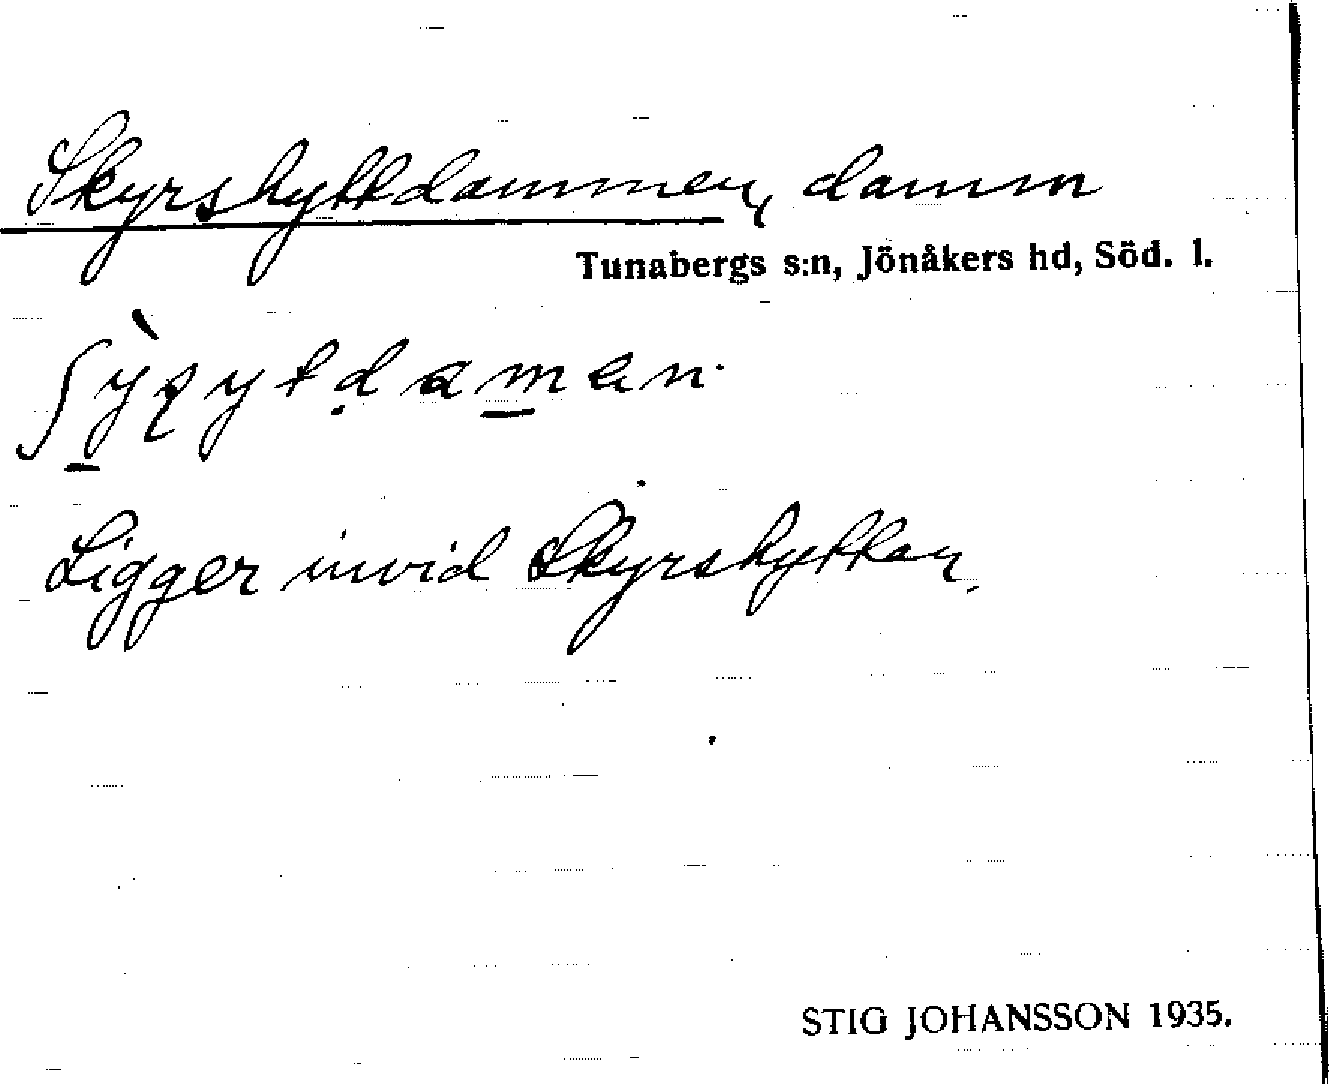 Skyrshyttdammen, damm
Tunabergs s:n, Jönåkers hd, Söd. l.
Ligger invid Skyrshyttan.
STIG JOHANSSON 1935.